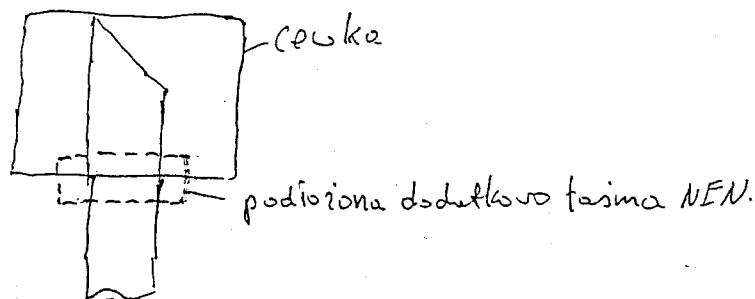 cewka
podłożona dodatkowo taśma NEN.